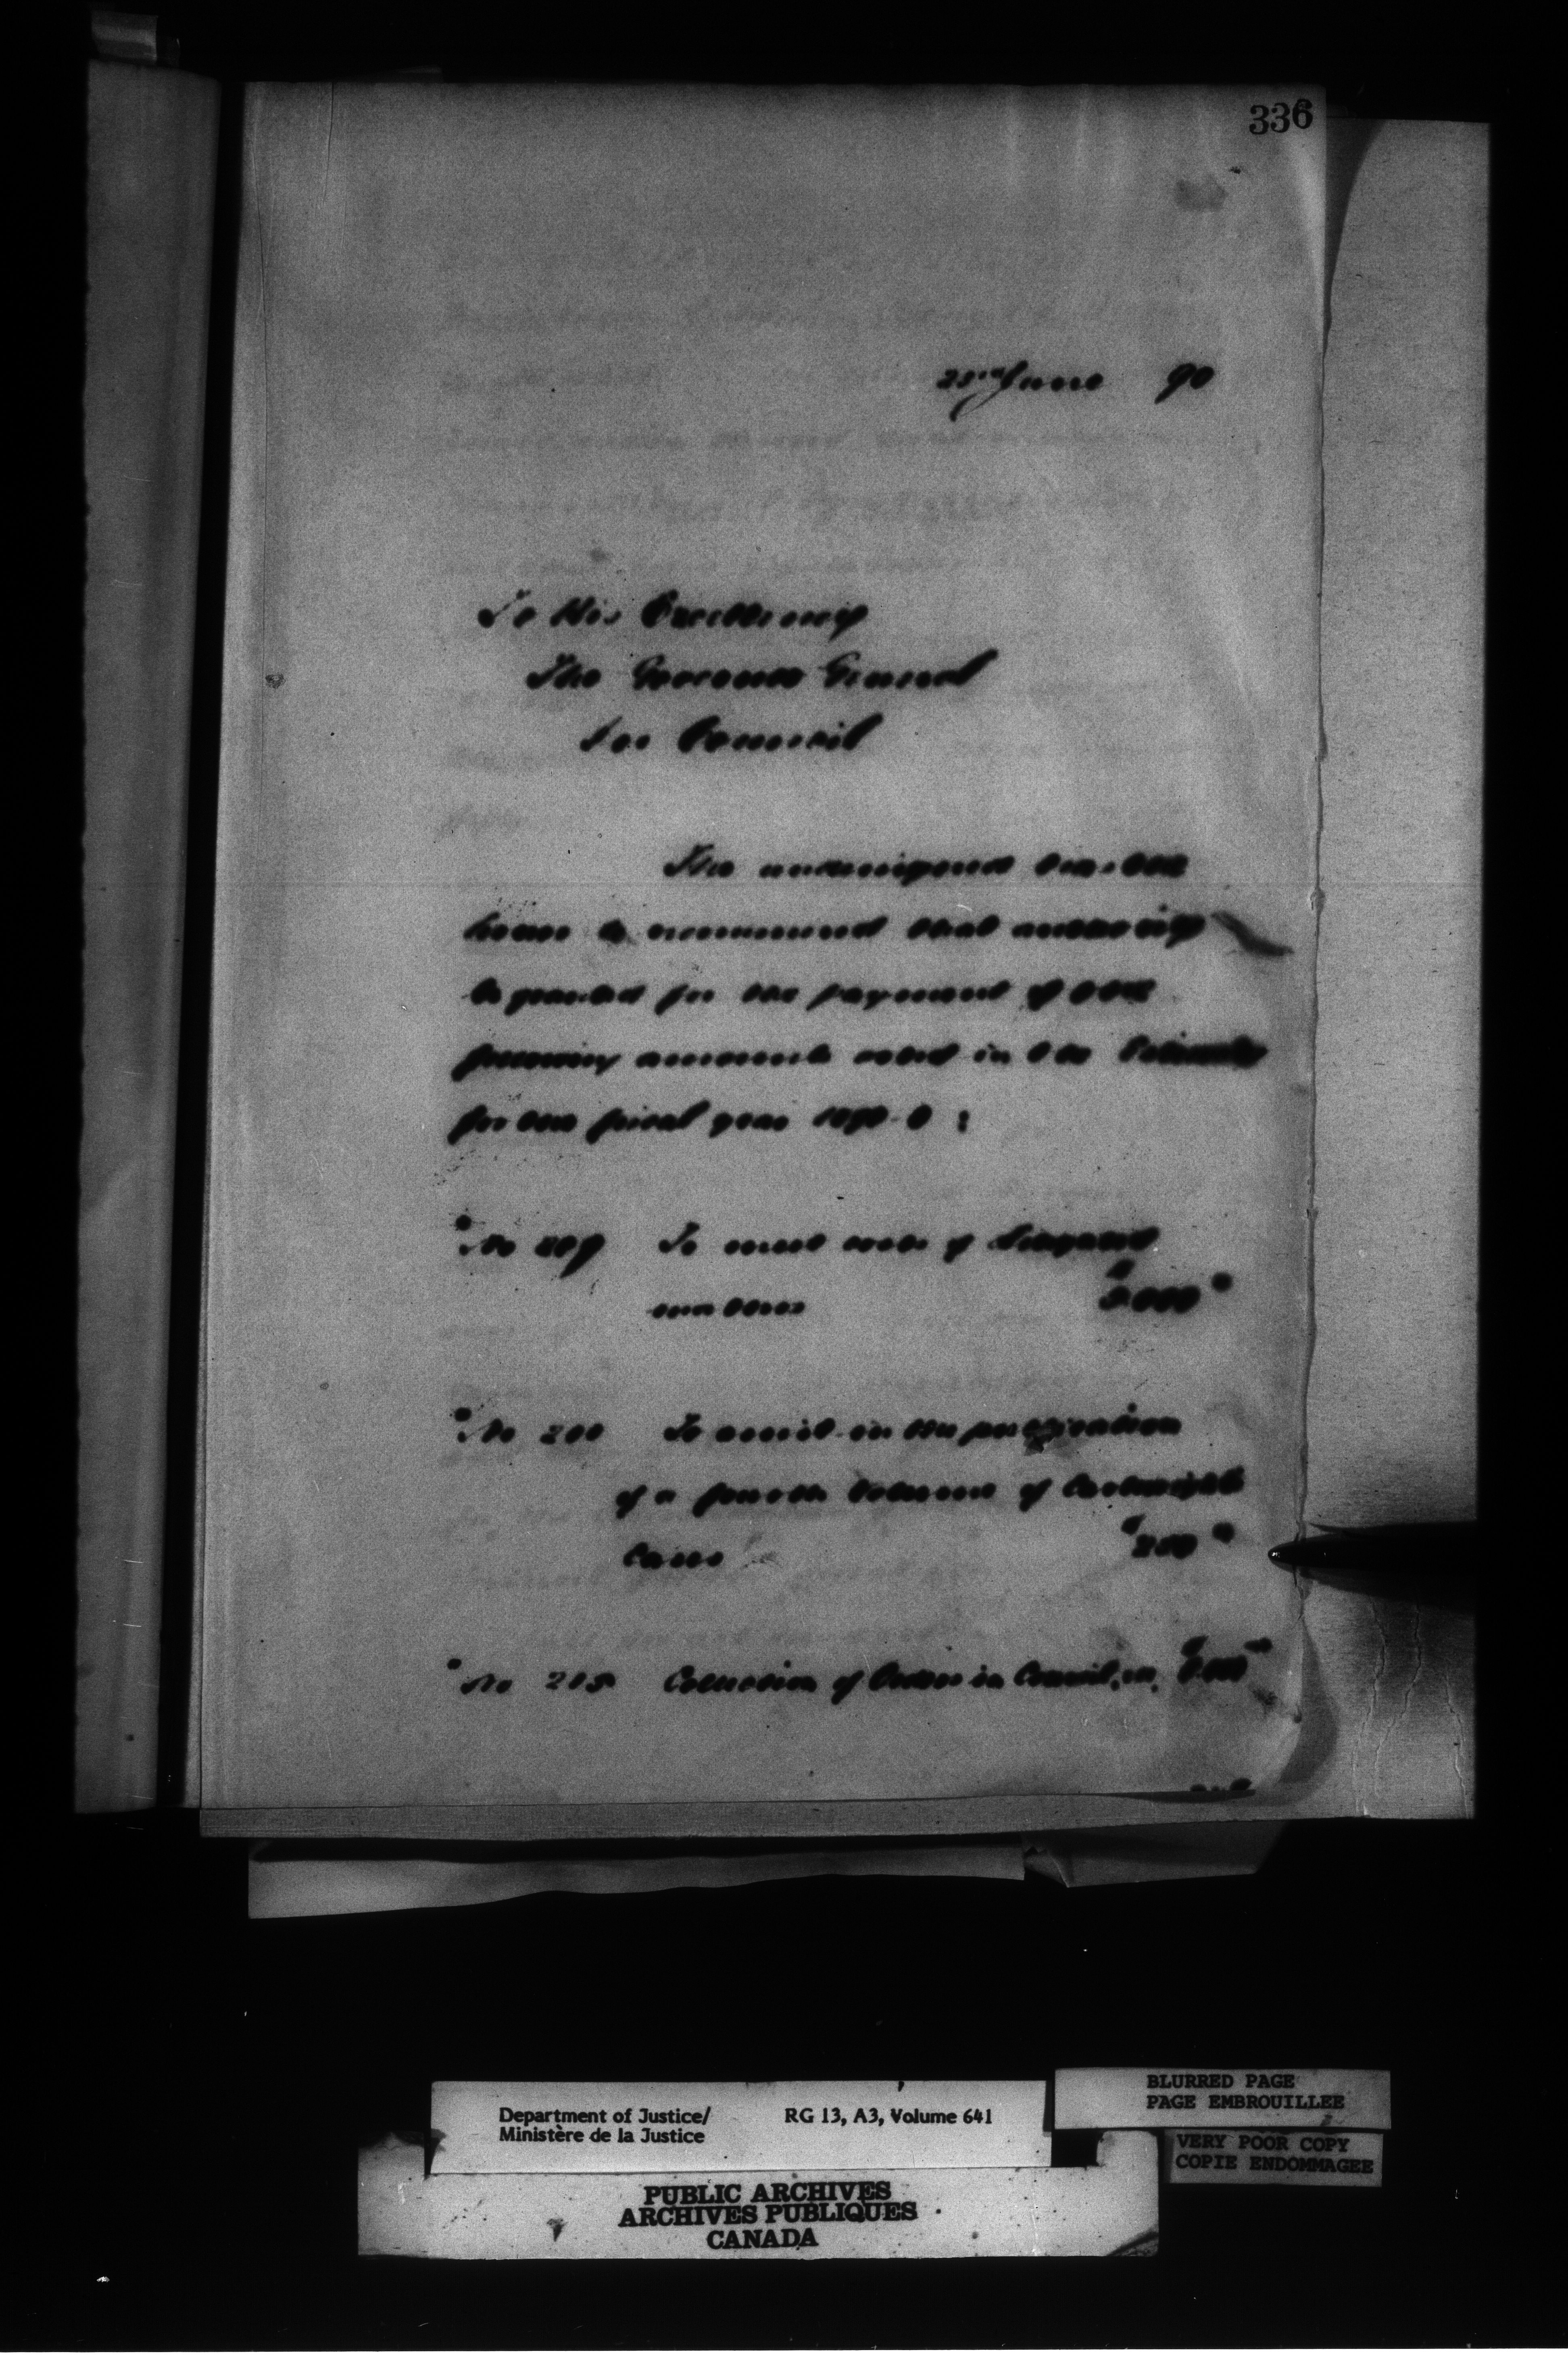 336
23rd June 90
To His Excellency
The Governor General
in Council
The undersigned has the
honor to recommend that authority
be granted for the payment of the
following amounts voted in the Estimates
for the fiscal year 1890-
"No To meet costs of litigated
matters
"No To assist in the publication
of a fourth volume of Cartwright's
Cases
"No 215 Collection of Orders in Council,
Department of Justice/ RG 13, A3, Volume 641
Ministère de la Justice
BLURRED PAGE
PAGE EMBROUILLEE
VERY POOR COPY
COPIE ENDOMMAGEE
PUBLIC ARCHIVES
ARCHIVES PUBLIQUES
CANADA